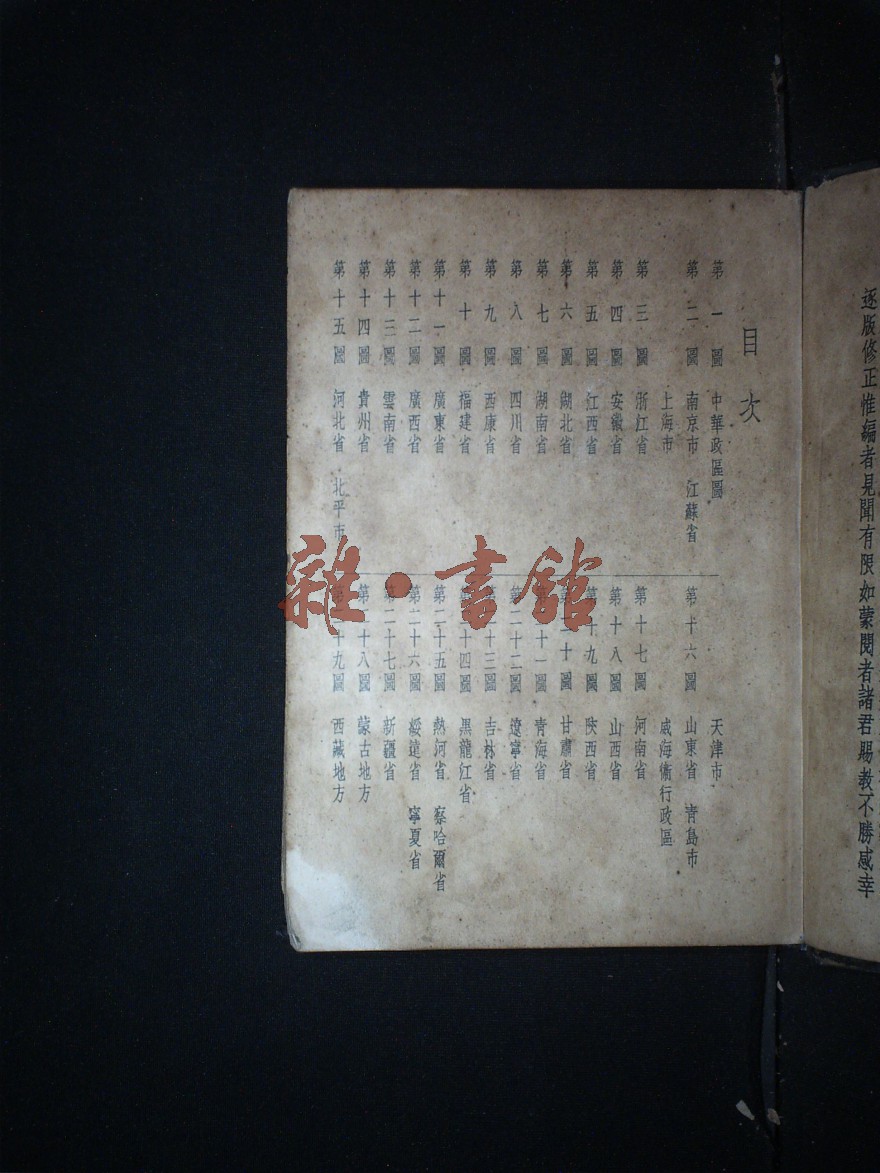 逐版修正惟編者見聞有限如蒙閱者諸君賜教不勝感幸
目次
第一圖 中華政區圖
第二圖 南京市 江蘇省
上海市
第三圖 浙江省
第四圖 安徽省
第五圖 江西省
第六圖 湖北省
第七圖 湖南省
第八圖 四川省
第九圖 西康省
第十圖 福建省
第十一圖 廣東省
第十二圖 廣西省
第十三圖 雲南省
第十四圖 貴州省
第十五圖 河北省 北平市
天津市
第十六圖 山東省 青島市
威海衛行政區
第十七圖 河南省
第十八圖 山西省
第十九圖 陝西省
第二十圖 甘肅省
十一圖 青海省
二十二圖 遼寧省
十三圖 吉林省
十四圖 黑龍江省
第二十五圖 熱河省 察哈爾省
第二十六圖 綏遠省 寧夏省
第二十七圖 新疆省
第二十八圖 蒙古地方
第二十九圖 西藏地方
雜·書館